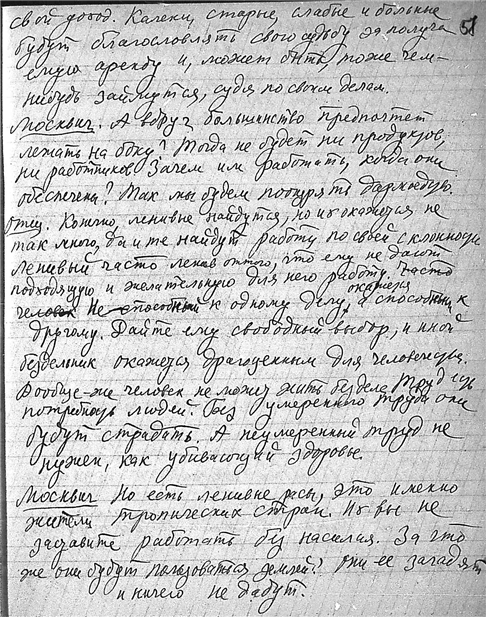 51
свой доход. Калеки, старые, слабые и больные
будут благословлять свою судьбу за получа
емую аренду и, может быть тоже чем-
нибудь займутся, судя по своим делам.
Москвич. А вдруг большинство предпочтет
лежать на боку? Тогда не будет ни продуктов,
ни работников. Зачем им работать, когда они
обеспечены? Так мы будем поощрять дармоедую.
Отец. Конечно ленивые найдутся, но их окажется не
так много, да и те найдут работу по своей склонности
Ленивый часто ленив оттого, что ему не дают
подходящую и желательную для него работу. Часто
человек не способный к одному делу, окажется способным к
другому. Дайте ему свободный выбор, и иной
бездельник окажется драгоценным для человечества.
Вообще-же человек не может жить без дела. Труд есть
потребность людей. Без умеренного труда они
будут страдать. А неумеренный труд не
нужен, как убивающий здоровье.
Москвич Но есть ленивые расы, это именно
жители тропических стран. Их вы не
заставите работать без насилия. За что
же они будут пользоваться землей? Они ее загадят
и ничего не дадут.